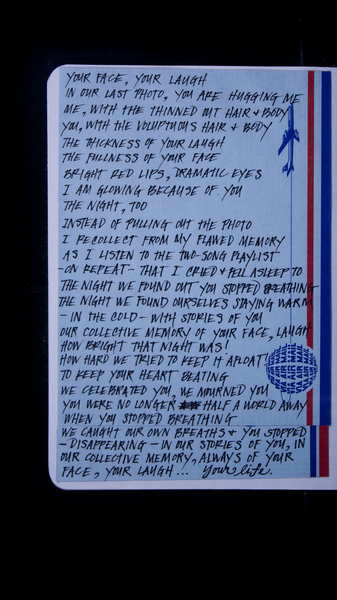 YOUR FACE, YOUR LAUGH
IN OUR LAST PHOTO, YOU ARE HUGGING ME
ME, WITH THE THINNED OUT HAIR & BODY
YOU, WITH THE VOLUPTUOUS HAIR & BODY
THE THICKNESS OF YOUR LAUGH
THE FULLNESS OF YOUR FACE
BRIGHT RED LIPS, DRAMATIC EYES
I AM GLOWING BECAUSE OF YOU
THE NIGHT, TOO
INSTEAD OF PULLING OUT THE PHOTO
I RECOLLECT FROM MY FLAWED MEMORY
AS I LISTEN TO THE TWO-SONG PLAYLIST
-ON REPEAT- THAT I CRIED & FELL ASLEEP TO
THE NIGHT WE FOUND OUT YOU STOPPED BREATHING
THE NIGHT WE FOUND OURSELVES STAYING WARM
- IN THE COLD - WITH STORIES OF YOU
OUR COLLECTIVE MEMORY OF YOUR FACE, LAUGH
HOW BRIGHT THAT NIGHT WAS!
HOW HARD WE TRIED TO KEEP IT AFLOAT!
TO KEEP YOUR HEART BEATING
WE CELEBRATED YOU, WE MOURNED YOU
YOU WERE NO LONGER HALF A WORLD AWAY
WHEN YOU STOPPED BREATHING
WE CAUGHT OUR OWN BREATHS & YOU STOPPED
- DISAPPEARING - IN OUR STORIES OF YOU, IN
OUR COLLECTIVE MEMORY, ALWAYS OF YOUR
FACE, YOUR LAUGH... Your life.
VIA AIR MAIL
VIA AIR MAIL
VIA AIR MAIL